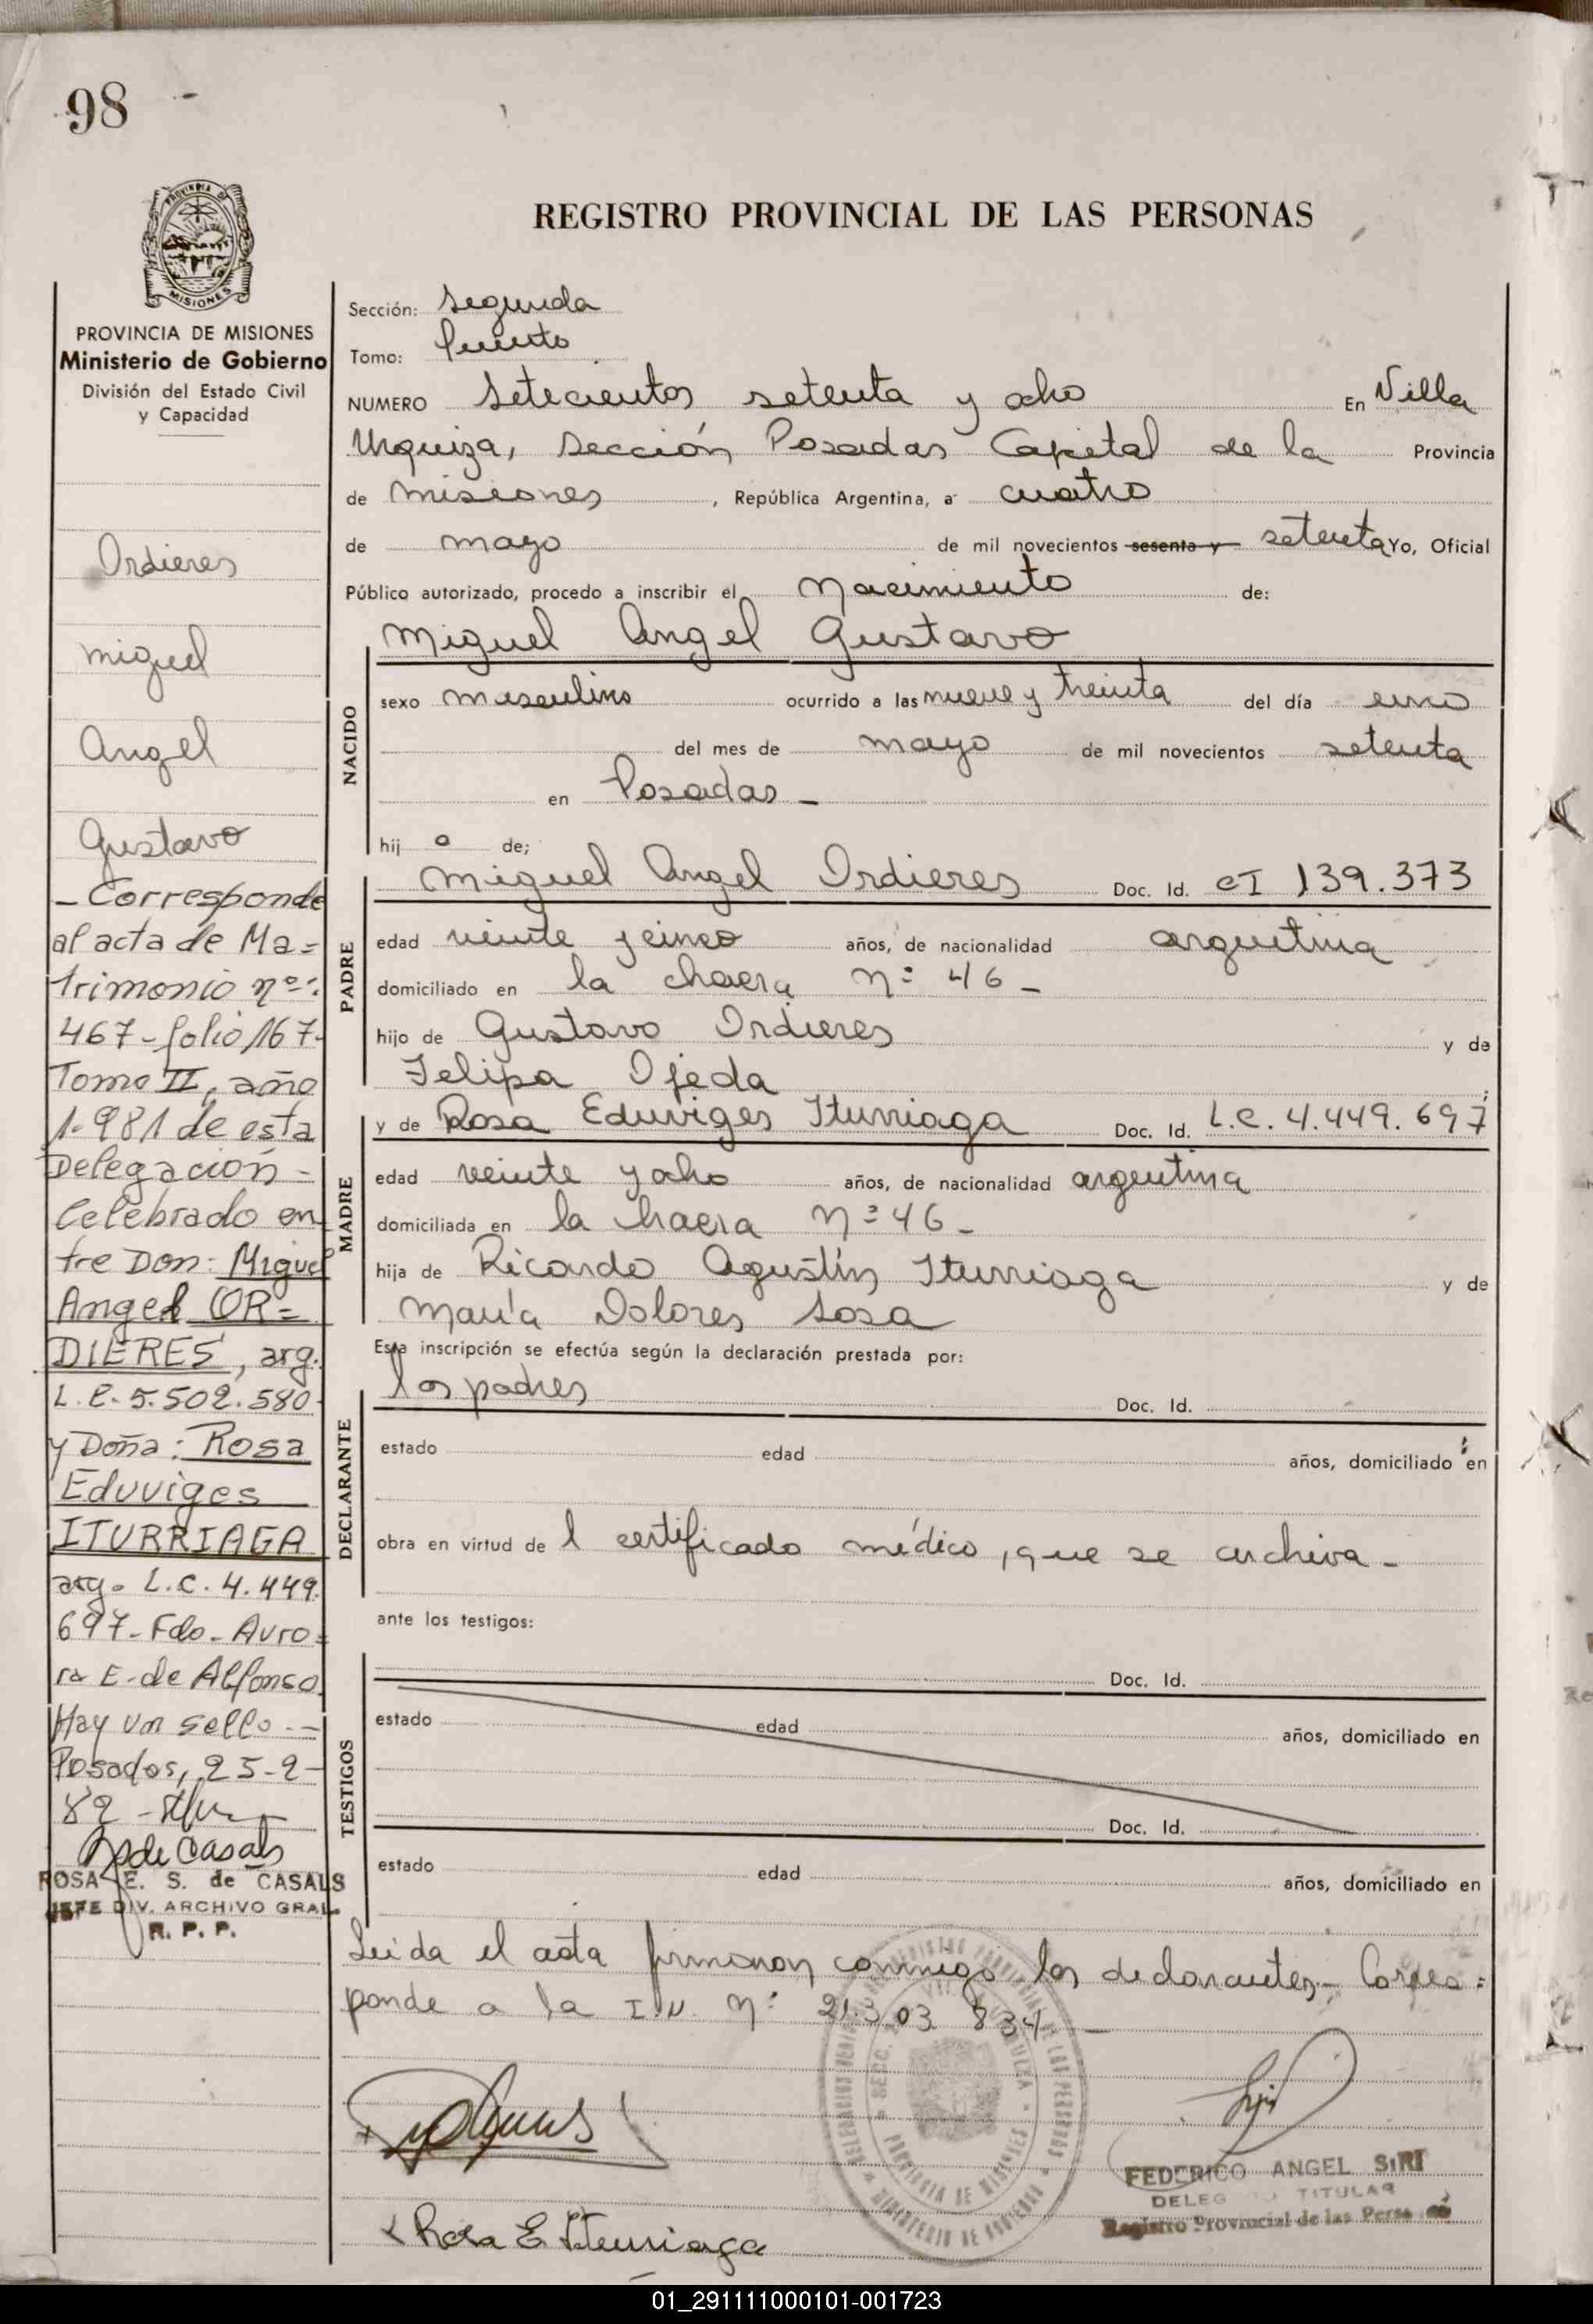 98
PROVINCIA DE MISIONES
Ministerio de Gobierno
División del Estado Civil
y Capacidad
Ordieres
Miguel
Angel
Gustavo
- Corresponde
al acta de Ma=
trimonio nº:
467-folio 167-
Tomo II, año
1.981 de esta
Delegación-
Celebrado en
tre Don: Miguel
Angel OR=
DIERES, arg.
L.E. 5.502.580
y Doña: Rosa
Eduviges
ITURRIAGA
arg. L.C. 4.449.
697- Fdo- Auro=
ra E. de Alfonso
Hay un sello.-
Posadas, 25-2-
82
R de Casals
ROSA E. S. de CASALS
JEFE DIV. ARCHIVO GRAL
R. P. P.
REGISTRO PROVINCIAL DE LAS PERSONAS
Sección: Segunda
Tomo: Quinto
NUMERO Setecientos setenta y ocho En Villa
Urquiza, Sección Posadas Capital de la Provincia
de Misiones, República Argentina, a cuatro
de mayo de mil novecientos sesenta y setenta Yo, Oficial
Público autorizado, procedo a inscribir el Nacimiento de:
Miguel Angel Gustavo
NACIDO
sexo masculino ocurrido a las nueve y treinta del día uno
del mes de mayo de mil novecientos setenta
en Posadas -
hij o de;
PADRE
Miguel Angel Ordieres Doc. Id. CI 139.373
edad veinte y cinco años, de nacionalidad argentina
domiciliado en la chacra Nº 46 -
hijo de Gustavo Ordieres y de
Felipa Ojeda ;
MADRE
y de Rosa Eduviges Iturriaga Doc. Id. L.C. 4.449.697
edad veinte y ocho años, de nacionalidad argentina
domiciliada en la chacra Nº 46 -
hija de Ricardo Agustín Iturriaga y de
María Dolores Sosa
Esta inscripción se efectúa según la declaración prestada por:
DECLARANTE
los padres Doc. Id.
estado edad años, domiciliado en
obra en virtud de l certificado médico, que se archiva -
ante los testigos:
TESTIGOS
Doc. Id.
estado edad años, domiciliado en
Doc. Id.
estado edad años, domiciliado en
Leída el acta firmaron conmigo los declarantes - Corres=
ponde a la I.N. Nº 21.303.834 -
Rosa E Iturriaga
FEDERICO ANGEL SIRI
TITULAR
Registro Provincial de las Personas
01_291111000101-001723